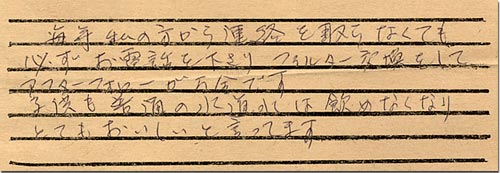 毎年私の方から連絡を取らなくても
必ずお電話を下さりフィルター交換をして
アフターフォローが万全です
子供も普通の水道水は飲めなくなり
とてもおいしいと言ってます